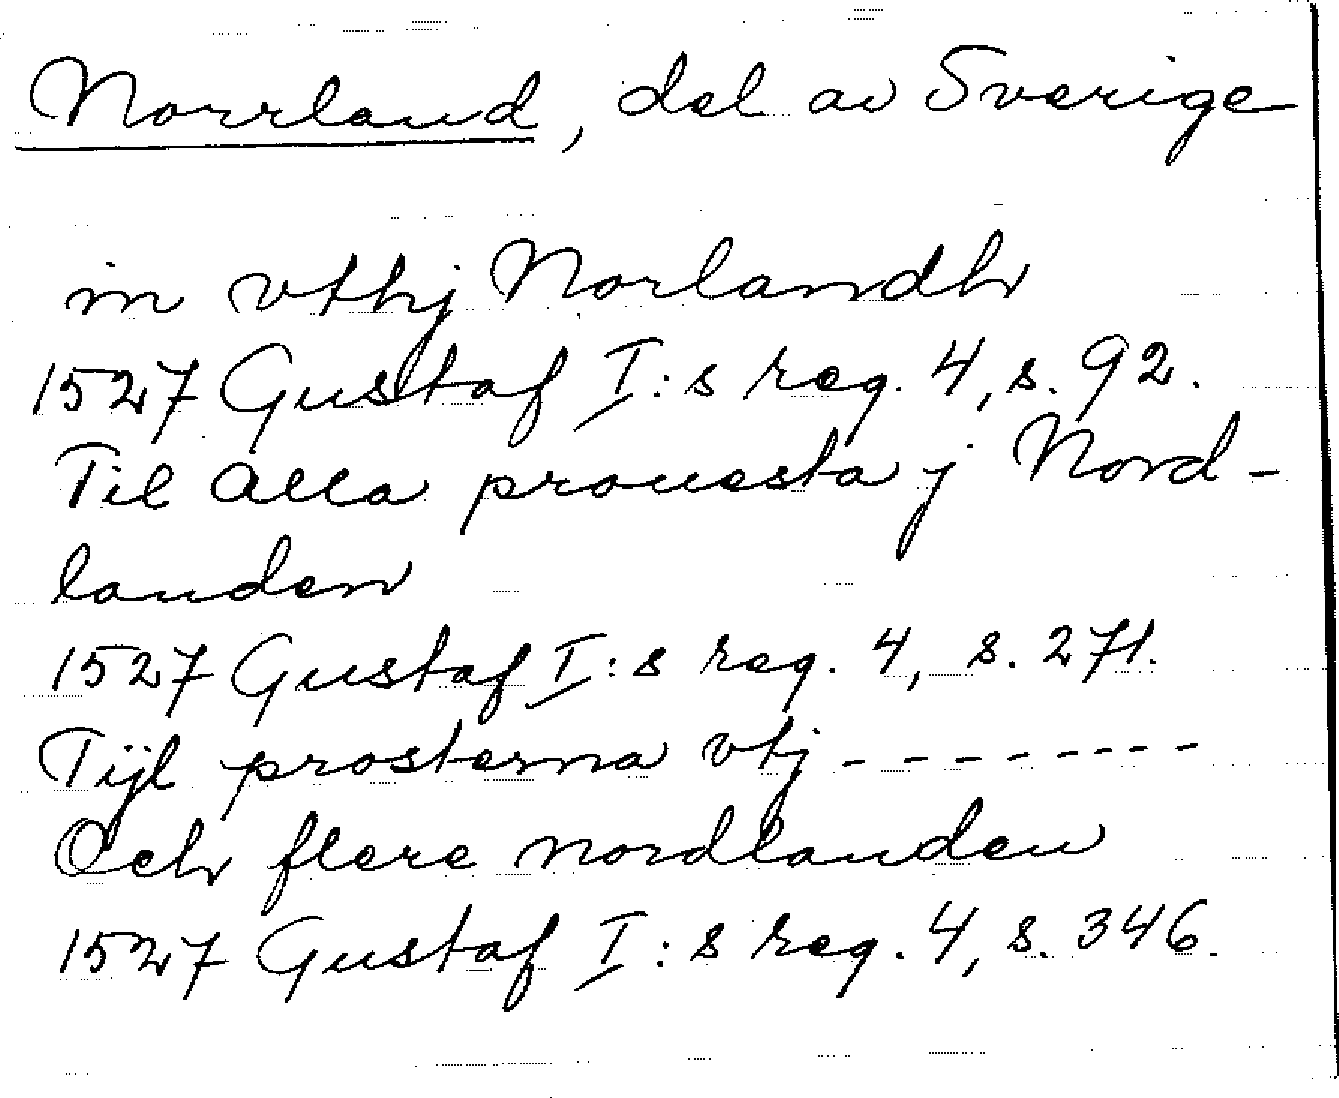 Norrland, del av Sverige
in vthj Norlandh
1527 Gustaf I:s reg. 4, s. 92.
Til Alla prouesta j Nord-
landen
1527 Gustaf I:s reg. 4, s. 271.
Tijl prosterna vtj - - - - - - - -
Och flere nordlanden
1527 Gustaf I:s reg. 4, s. 346.